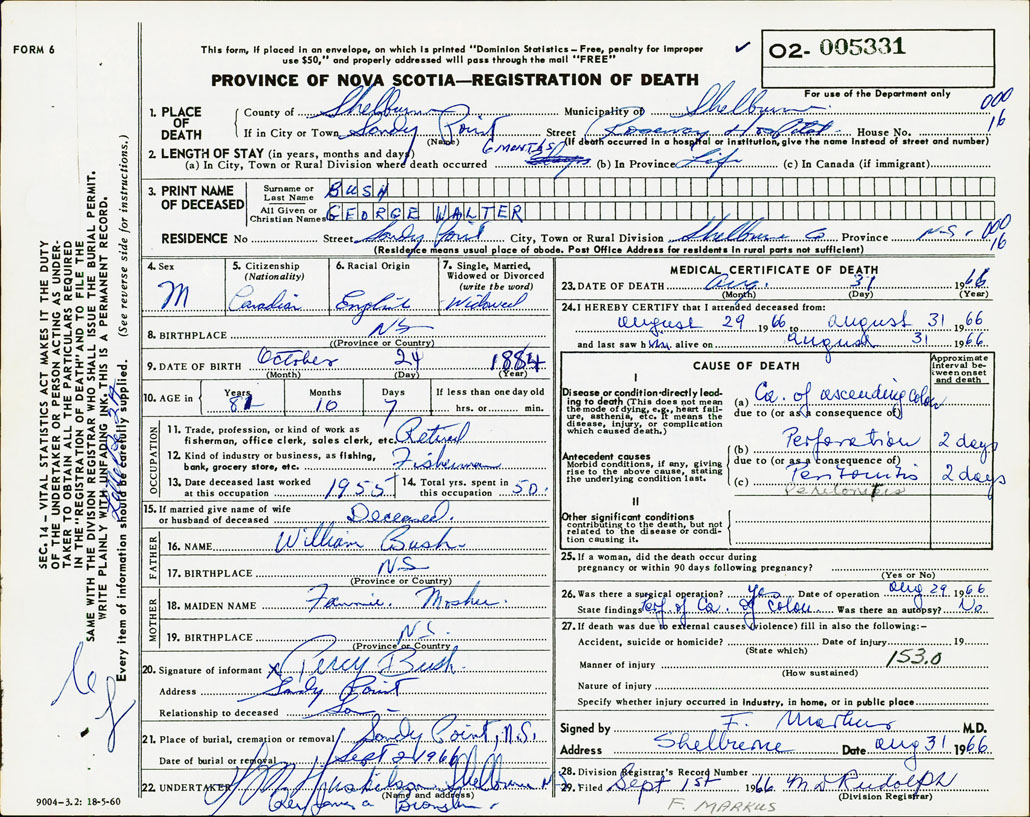 FORM 6
This form, if placed in an envelope, on which is printed "Dominion Statistics – Free, penalty for improper
use $50," and properly addressed will pass through the mail "FREE"
✓ O2- 005331
For use of the Department only
PROVINCE OF NOVA SCOTIA—REGISTRATION OF DEATH
SEC. 14 – VITAL STATISTICS ACT MAKES IT THE DUTY
OF THE UNDERTAKER OR PERSON ACTING AS UNDER-
TAKER TO OBTAIN ALL THE PARTICULARS REQUIRED
IN THE "REGISTRATION OF DEATH" AND TO FILE THE
SAME WITH THE DIVISION REGISTRAR WHO SHALL ISSUE THE BURIAL PERMIT.
WRITE PLAINLY WITH UNFADING INK. THIS IS A PERMANENT RECORD.
Every item of information should be carefully supplied. (See reverse side for instructions.)
1. PLACE OF DEATH
County of Shelburne Municipality of Shelburne 000
If in City or Town Sandy Point Street Roseway Hospital House No. 16
(Name) (If death occurred in a hospital or institution, give the name instead of street and number)
2. LENGTH OF STAY (in years, months and days) 6 MONTHS
(a) In City, Town or Rural Division where death occurred (b) In Province Life (c) In Canada (if immigrant)
3. PRINT NAME OF DECEASED
Surname or Last Name BUSH
All Given or Christian Names GEORGE WALTER
RESIDENCE No Street Sandy Point City, Town or Rural Division Shelburne Co Province N.S. 000
16
(Residence means usual place of abode. Post Office Address for residents in rural parts not sufficient)
4. Sex M
5. Citizenship (Nationality) Canadian
6. Racial Origin English
7. Single, Married, Widowed or Divorced (write the word) Widowed
8. BIRTHPLACE NS
(Province or Country)
9. DATE OF BIRTH October 24 1884
(Month) (Day) (Year)
10. AGE in Years 81 Months 10 Days 7 If less than one day old hrs. or min.
OCCUPATION
11. Trade, profession, or kind of work as
fisherman, office clerk, sales clerk, etc. Retired
12. Kind of industry or business, as fishing,
bank, grocery store, etc. Fisherman
13. Date deceased last worked at this occupation 1955 14. Total yrs. spent in this occupation 50.
15. If married give name of wife
or husband of deceased Deceased.
FATHER
16. NAME William Bush
17. BIRTHPLACE NS
(Province or Country)
MOTHER
18. MAIDEN NAME Fannie Mosher
19. BIRTHPLACE N.S.
(Province or Country)
20. Signature of informant x Percy Bush
Address Sandy Point
Relationship to deceased Son
21. Place of burial, cremation or removal Sandy Point, N.S.
Date of burial or removal Sept 2 1966
22. UNDERTAKER Shelburne NS
(Name and address)
9004–3.2: 18-5-60
MEDICAL CERTIFICATE OF DEATH
23. DATE OF DEATH Aug. 31 1966
(Month) (Day) (Year)
24. I HEREBY CERTIFY that I attended deceased from:
August 29 1966 to August 31 1966
and last saw him alive on August 31 1966.
CAUSE OF DEATH
Approximate interval between onset and death
I
Disease or condition directly leading to death (This does not mean the mode of dying, e.g., heart failure, asthenia, etc. It means the disease, injury, or complication which caused death.)
(a) Ca. of ascending colon
due to (or as a consequence of)
Antecedent causes
Morbid conditions, if any, giving rise to the above cause, stating the underlying condition last.
(b) Perforation 2 days
due to (or as a consequence of)
(c) Peritonitis 2 days
Peritonitis
II
Other significant conditions
contributing to the death, but not related to the disease or condition causing it.
25. If a woman, did the death occur during
pregnancy or within 90 days following pregnancy?
(Yes or No)
26. Was there a surgical operation? yes Date of operation Aug 29 1966
State findings Perf of Ca. of colon Was there an autopsy? No
27. If death was due to external causes (violence) fill in also the following:–
Accident, suicide or homicide? Date of injury 19
(State which)
Manner of injury 153.0
(How sustained)
Nature of injury
Specify whether injury occurred in industry, in home, or in public place
Signed by F. Markus M.D.
Address Shelburne Date Aug 31 1966
28. Division Registrar's Record Number
29. Filed Sept 1st 1966 M D Rudolph
(Division Registrar)
F. MARKUS